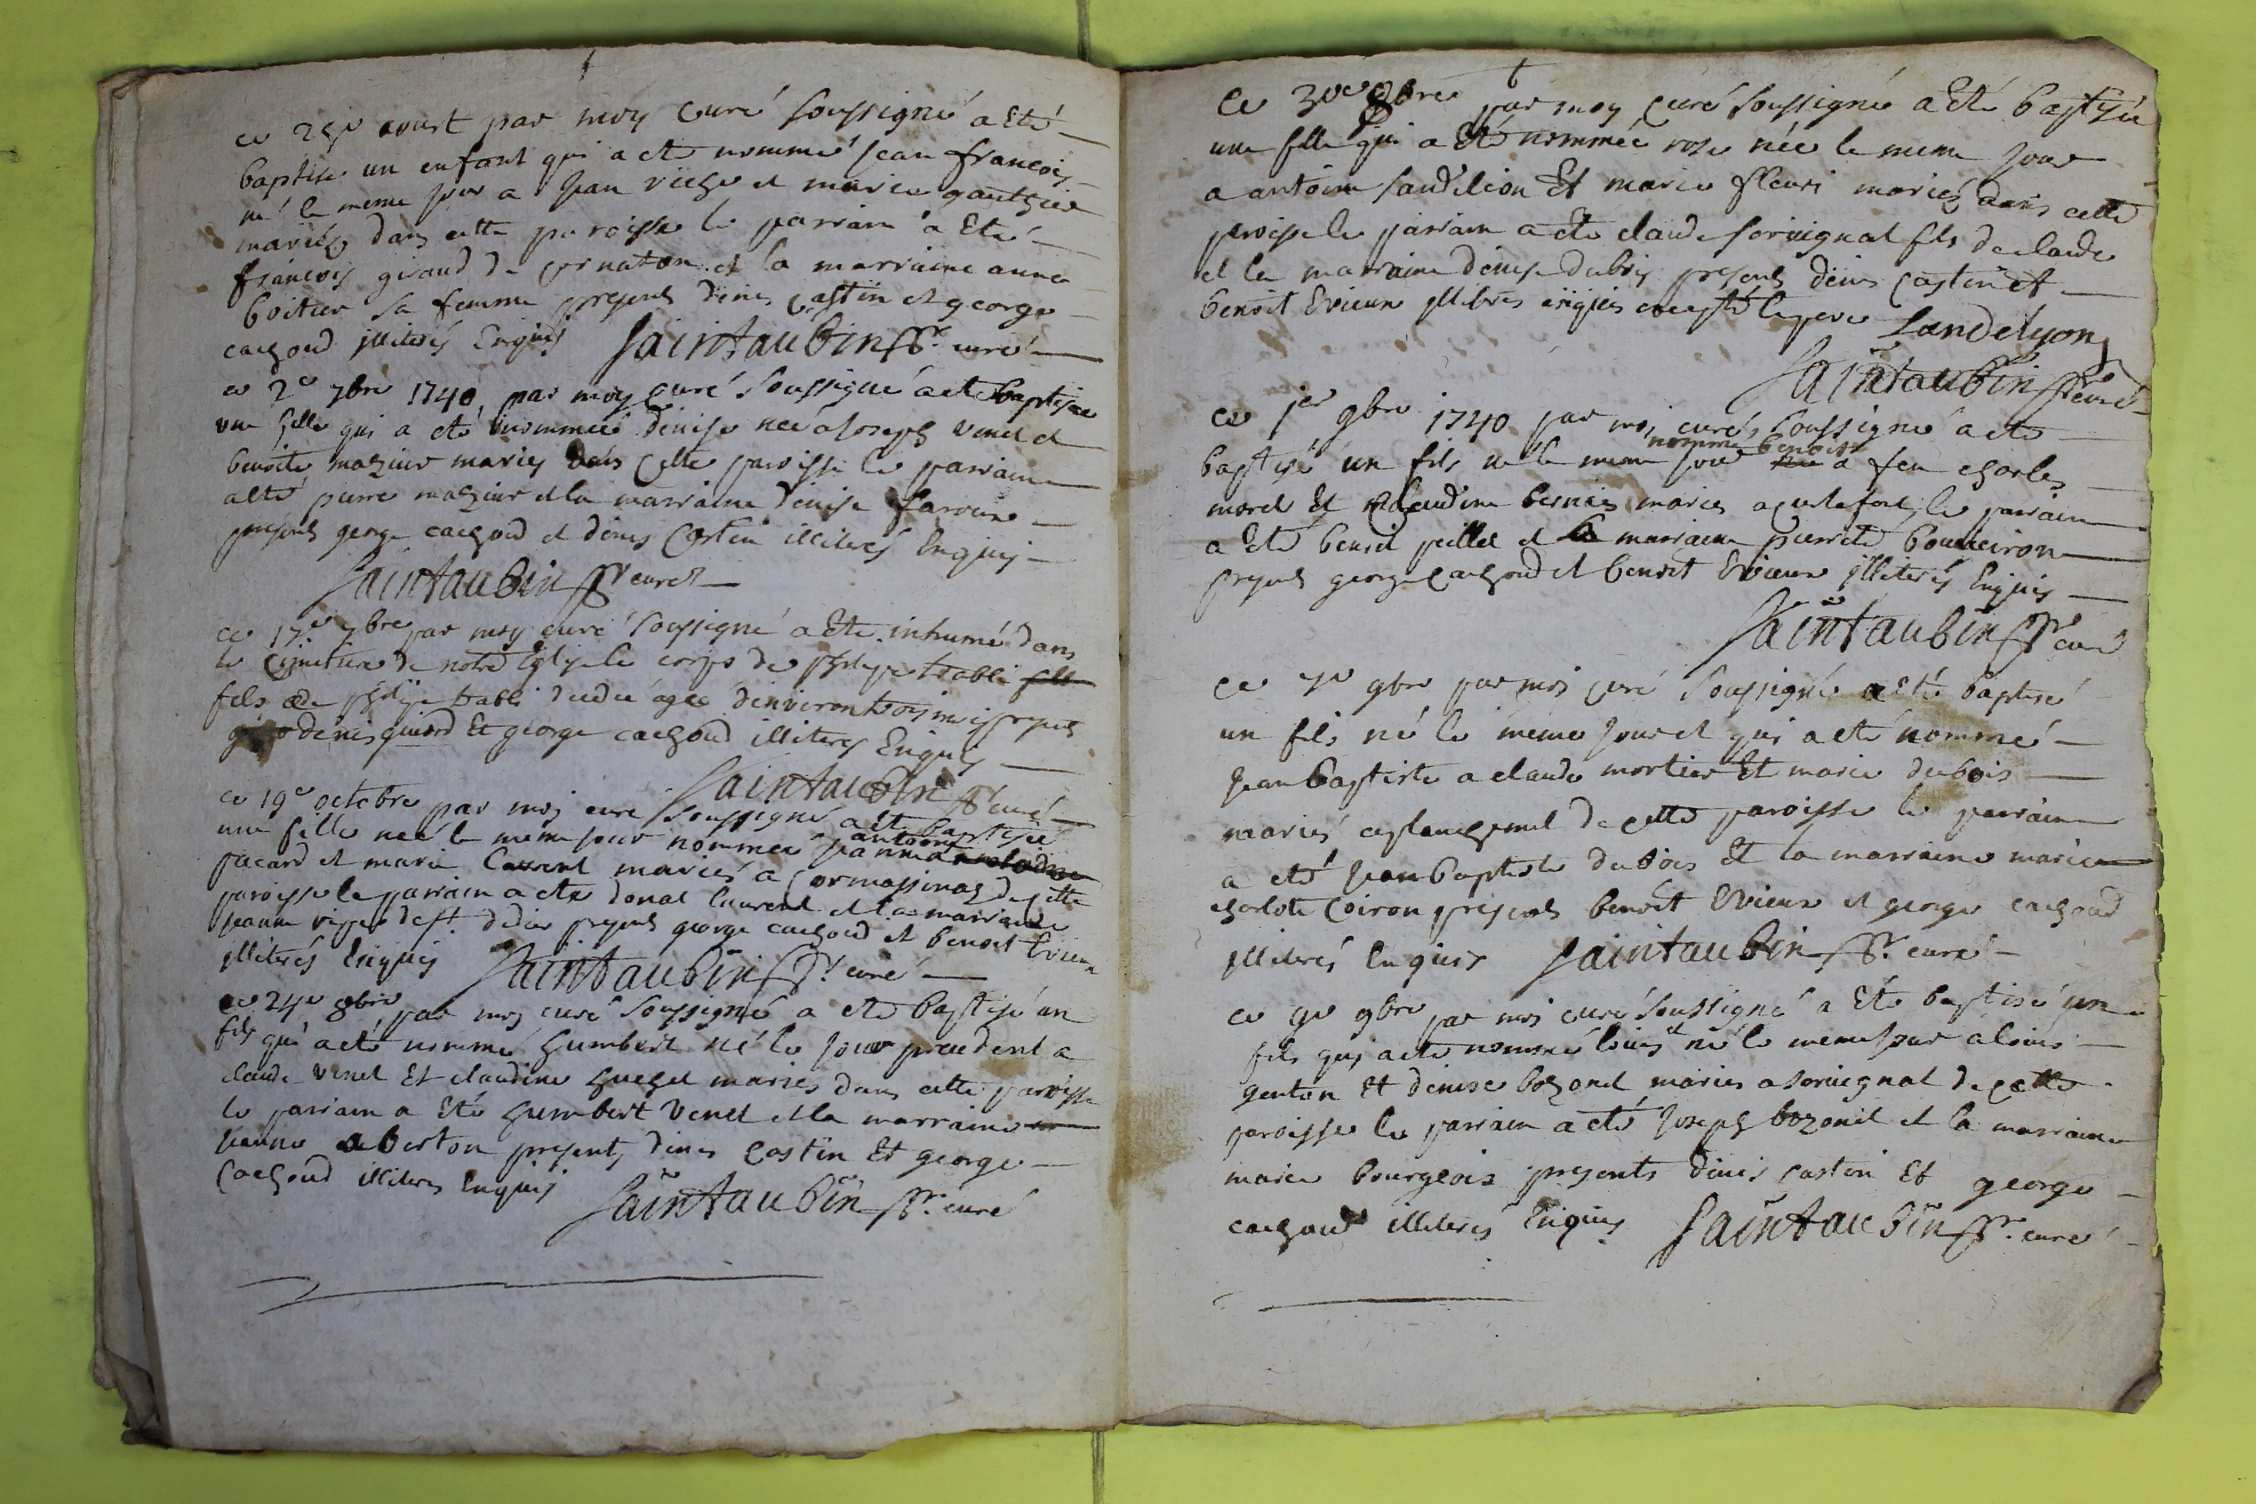 ce 25e aoust par moy curé soussigné a eté
baptisé un enfant qui a eté nommé jean francois
né le meme jour a jean riche et marie gauthier
mariés dans cette paroisse le parrain a eté
francois giraud de cornaton et la marraine anne
boitier sa femme presents denis castin et george
cachoud illiterés enquis saintaubin ptr. curé
ce 2e 7bre 1740 par moy curé soussigné a eté baptisée
une fille qui a eté nommée denise née a joseph venet et
benoite mazuir mariés dans cette paroisse le parrain
a eté pierre mazuir et la marraine denise
presents george cachoud et denis castin illiterés enquis
saintaubin ptr curé
ce 17e 7bre par moy curé soussigné a eté inhumé dans
le cimetiere de notre eglise le corps de philipe trabli
fils de philipe trabli agé denviron trois mois presents
denis guiard et george cachoud illiterés enquis
saintaubin ptr curé
ce 19e octobre par moi curé soussigné a eté baptisée
une fille née le meme jour nommée jeanne a antoine
pacard et marie laurent mariés a cormassinas de cette
paroisse le parrain a eté donat laurent et la marraine
jeanne de st. didier presents george cachoud et benoit evieux
illiterés enquis saintaubin ptr. curé
ce 24e 8bre par moy curé soussigné a eté baptisé un
fils qui a eté nommé humbert né le jour precedent a
claude venet et claudine huchet mariés dans cette paroisse
le parrain a eté humbert venet et la marraine
jeanne aberton presents denis castin et george
cachoud illiterés enquis saintaubin ptr. curé
ce 30e 8bre par moy curé soussigné a eté baptisée
une fille qui a eté nommée rose née le meme jour
a antoine landelion et marie fleuri mariés dans cette
paroisse le parrain a eté claude soruignat fils de claude
et la marraine denise dubois presents denis castin et
benoit evieux illiterés enquis excepté le pere Landelyon
saintaubin ptr curé
ce 1er 9bre 1740 par moi curé soussigné a eté
baptisé un fils né le meme jour nommé benoit a feu charles
morel et claudine bernier mariés a le parrain
a eté benoit pillet et la marraine pierrete
presents george cachoud et benoit evieux illiterés enquis
saintaubin ptr curé
ce 7e 9bre par moi curé soussigné a eté baptisé
un fils né le meme jour et qui a eté nommé
jean baptiste a claude mortier et marie dubois
mariés de cette paroisse le parrain
a eté jean baptiste dubois et la marraine marie
charlote coiron presents benoit evieux et george cachoud
illiterés enquis saintaubin ptr. curé
ce 9e 9bre par moi curé soussigné a eté baptisé un
fils qui a eté nommé louis et né le meme jour a louis
genton et denise bozonet mariés a soruignat de cette
paroisse le parrain a eté joseph bozonet et la marraine
marie bourgeois presents denis castin et george
cachoud illiterés enquis saintaubin ptr. curé